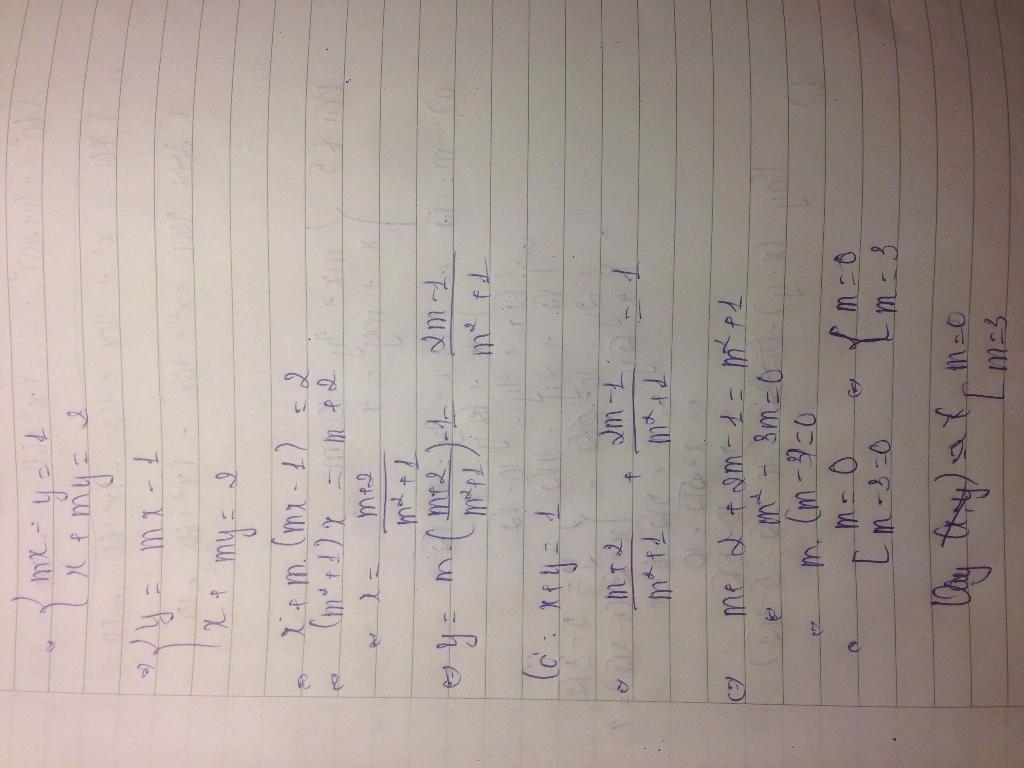 ⇔ { mx - y = 1
x + my = 2
⇒ { y = mx - 1
x + my = 2
⇔ x + m. (mx - 1) = 2
⇔ (m² + 1) x = m + 2
⇔ x = m+2 / m²+1
⇔ y = m (m+2 / m²+1) - 1 = 2m - 1 / m² + 1
Có : x + y = 1
⇔ m+2 / m²+1 + 2m - 1 / m²+1 = 1
⇔ m + 2 + 2m - 1 = m² + 1
⇔ m² - 3m = 0
⇔ m. (m - 3) = 0
⇔ [ m = 0 ⇔ [ m = 0
m - 3 = 0 [ m = 3
Vậy m = 0
[ m = 3